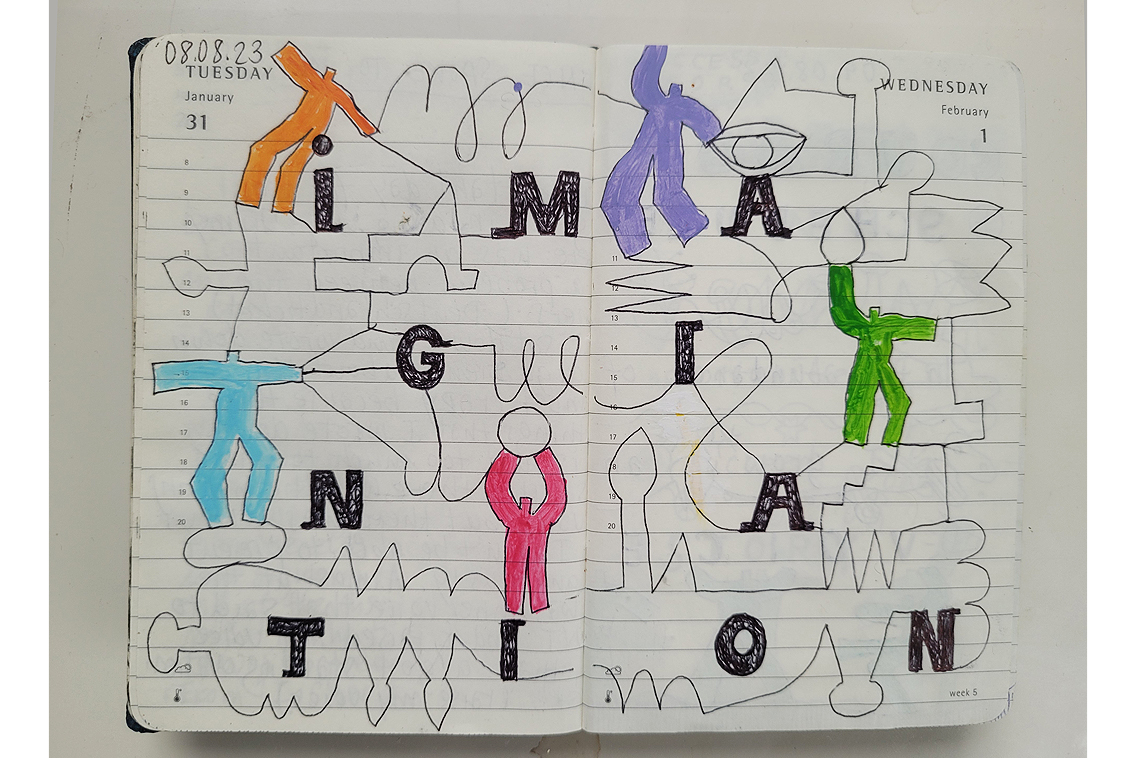 08.08.23
TUESDAY
January
31
WEDNESDAY
February
1
8
9
10
11
12
13
14
15
16
17
18
19
20
11
12
13
14
15
16
17
18
19
20
i M A
G I
N A
T I O N
week 5